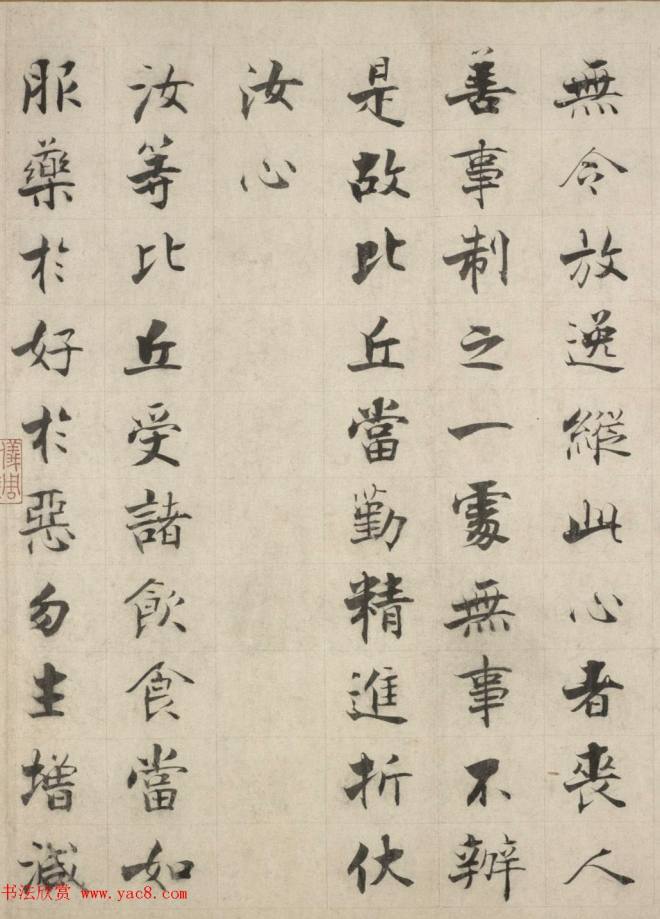 無令放逸縱此心者喪人
善事制之一處無事不辦
是故比丘當勤精進折伏
汝心
汝等比丘受諸飲食當如
服藥於好於惡勿生增減
儀周
书法欣赏 www.yac8.com